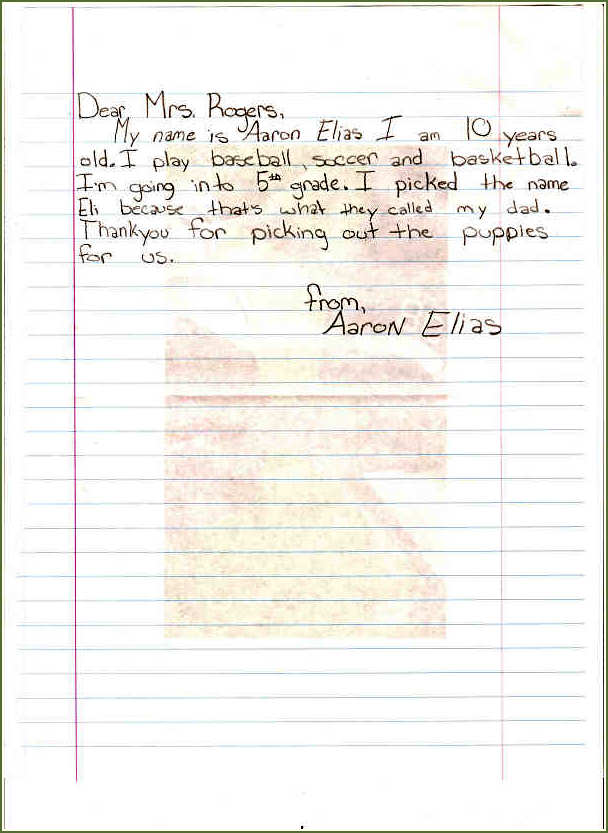 Dear Mrs. Rogers,
My name is Aaron Elias I am 10 years
old. I play baseball, soccer and basketball.
I'm going into 5th grade. I picked the name
Eli because thats what they called my dad.
Thankyou for picking out the puppies
for us.
from,
Aaron Elias